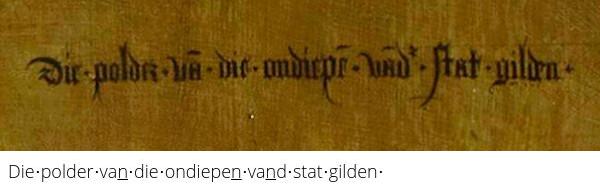 Die·polder·vā·die·ondiepē·vād'·stat·gilden·
Die·polder·van·die·ondiepen·vand·stat·gilden·